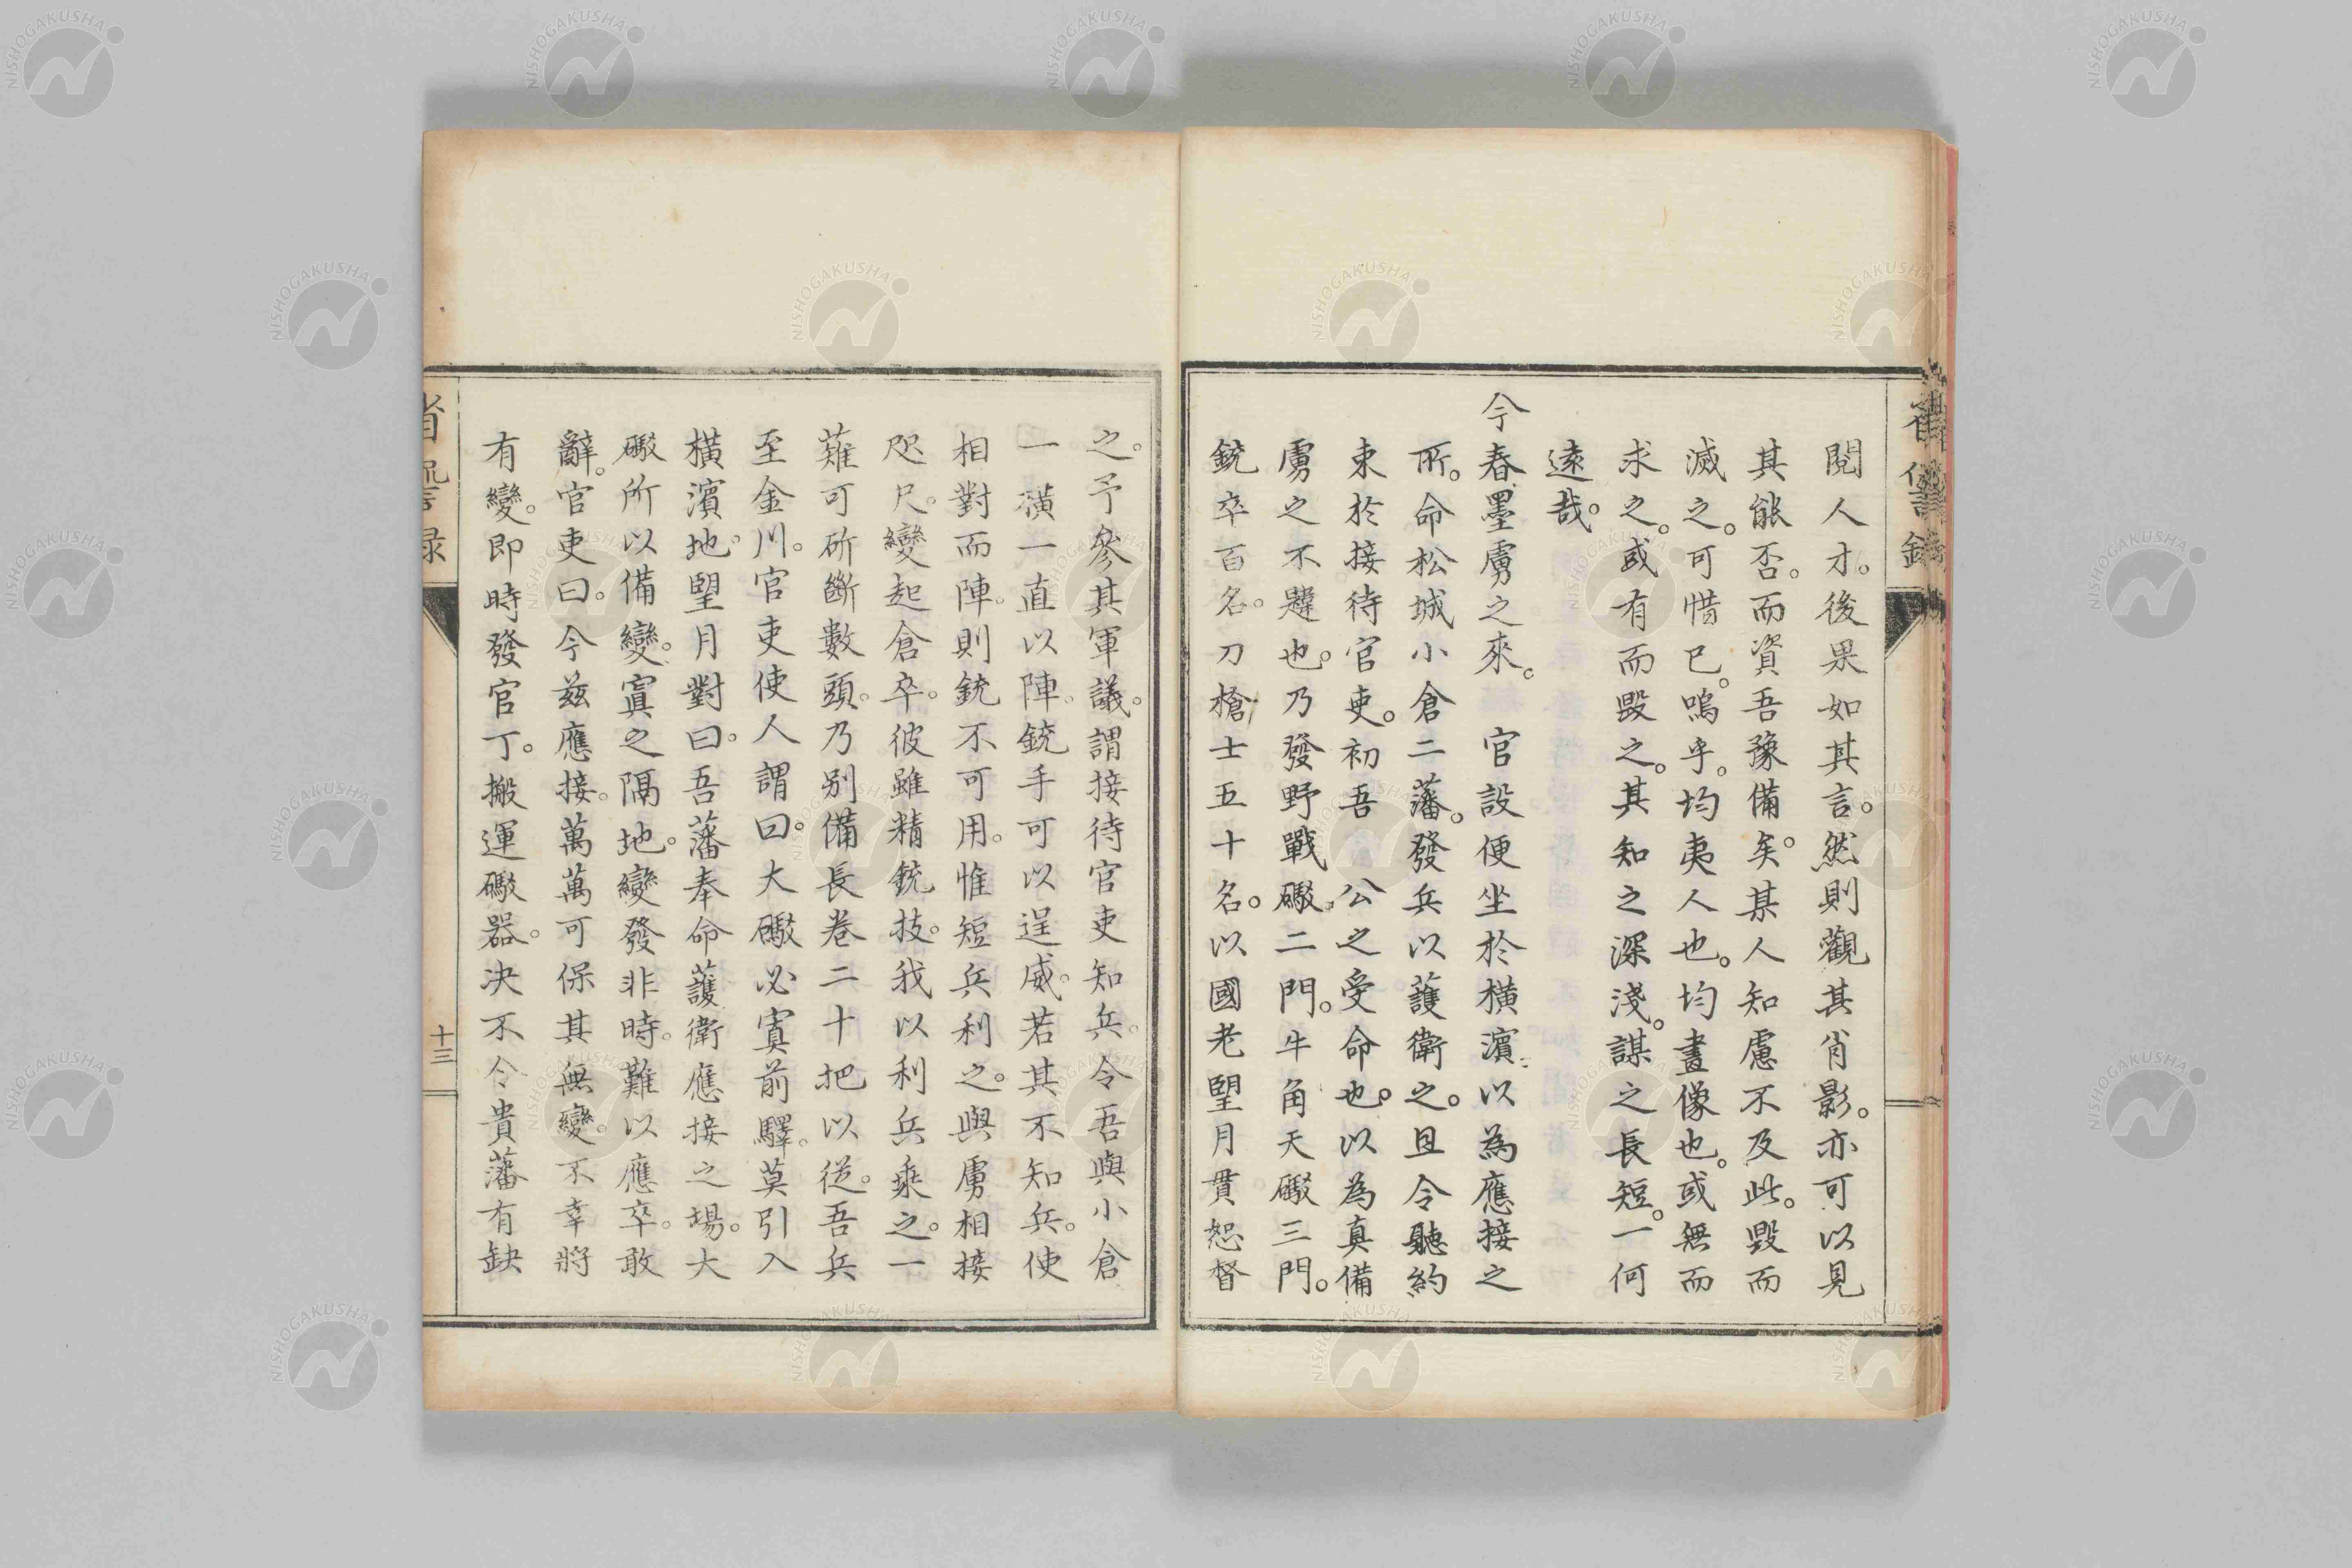 閱人才。後果如其言。然則觀其肖影。亦可以見
其能否。而資吾豫備矣。某人知慮不及此。毀而
滅之。可惜已。嗚乎。均夷人也。均畫像也。或無而
求之。或有而毀之。其知之深淺。謀之長短。一何
遠哉。
今春墨虜之來。 官設便坐於橫濱。以為應接之
所。命松城小倉二藩。發兵以護衛之。且令聽約
束於接待官吏。初吾 公之受命也。以為真備
虜之不韙也。乃發野戰礮二門。牛角天礮三門。
銃卒百名。刀槍士五十名。以國老望月貫恕督
之。予參其軍議。謂接待官吏知兵。令吾與小倉
一橫一直以陣。銃手可以逞威。若其不知兵。使
相對而陣。則銃不可用。惟短兵利之。與虜相接
咫尺。變起倉卒。彼雖精銃技。我以利兵乘之。一
薙可斫斷數頭。乃別備長卷二十把以從。吾兵
至金川。官吏使人謂曰。大礮必寘前驛。莫引入
橫濱地。望月對曰。吾藩奉命護衛應接之場。大
礮所以備變。寘之隔地。變發非時。難以應卒。敢
辭。官吏曰。今茲應接。萬萬可保其無變。不幸將
有變。即時發官丁。搬運礮器。決不令貴藩有缺
省諐錄
十三